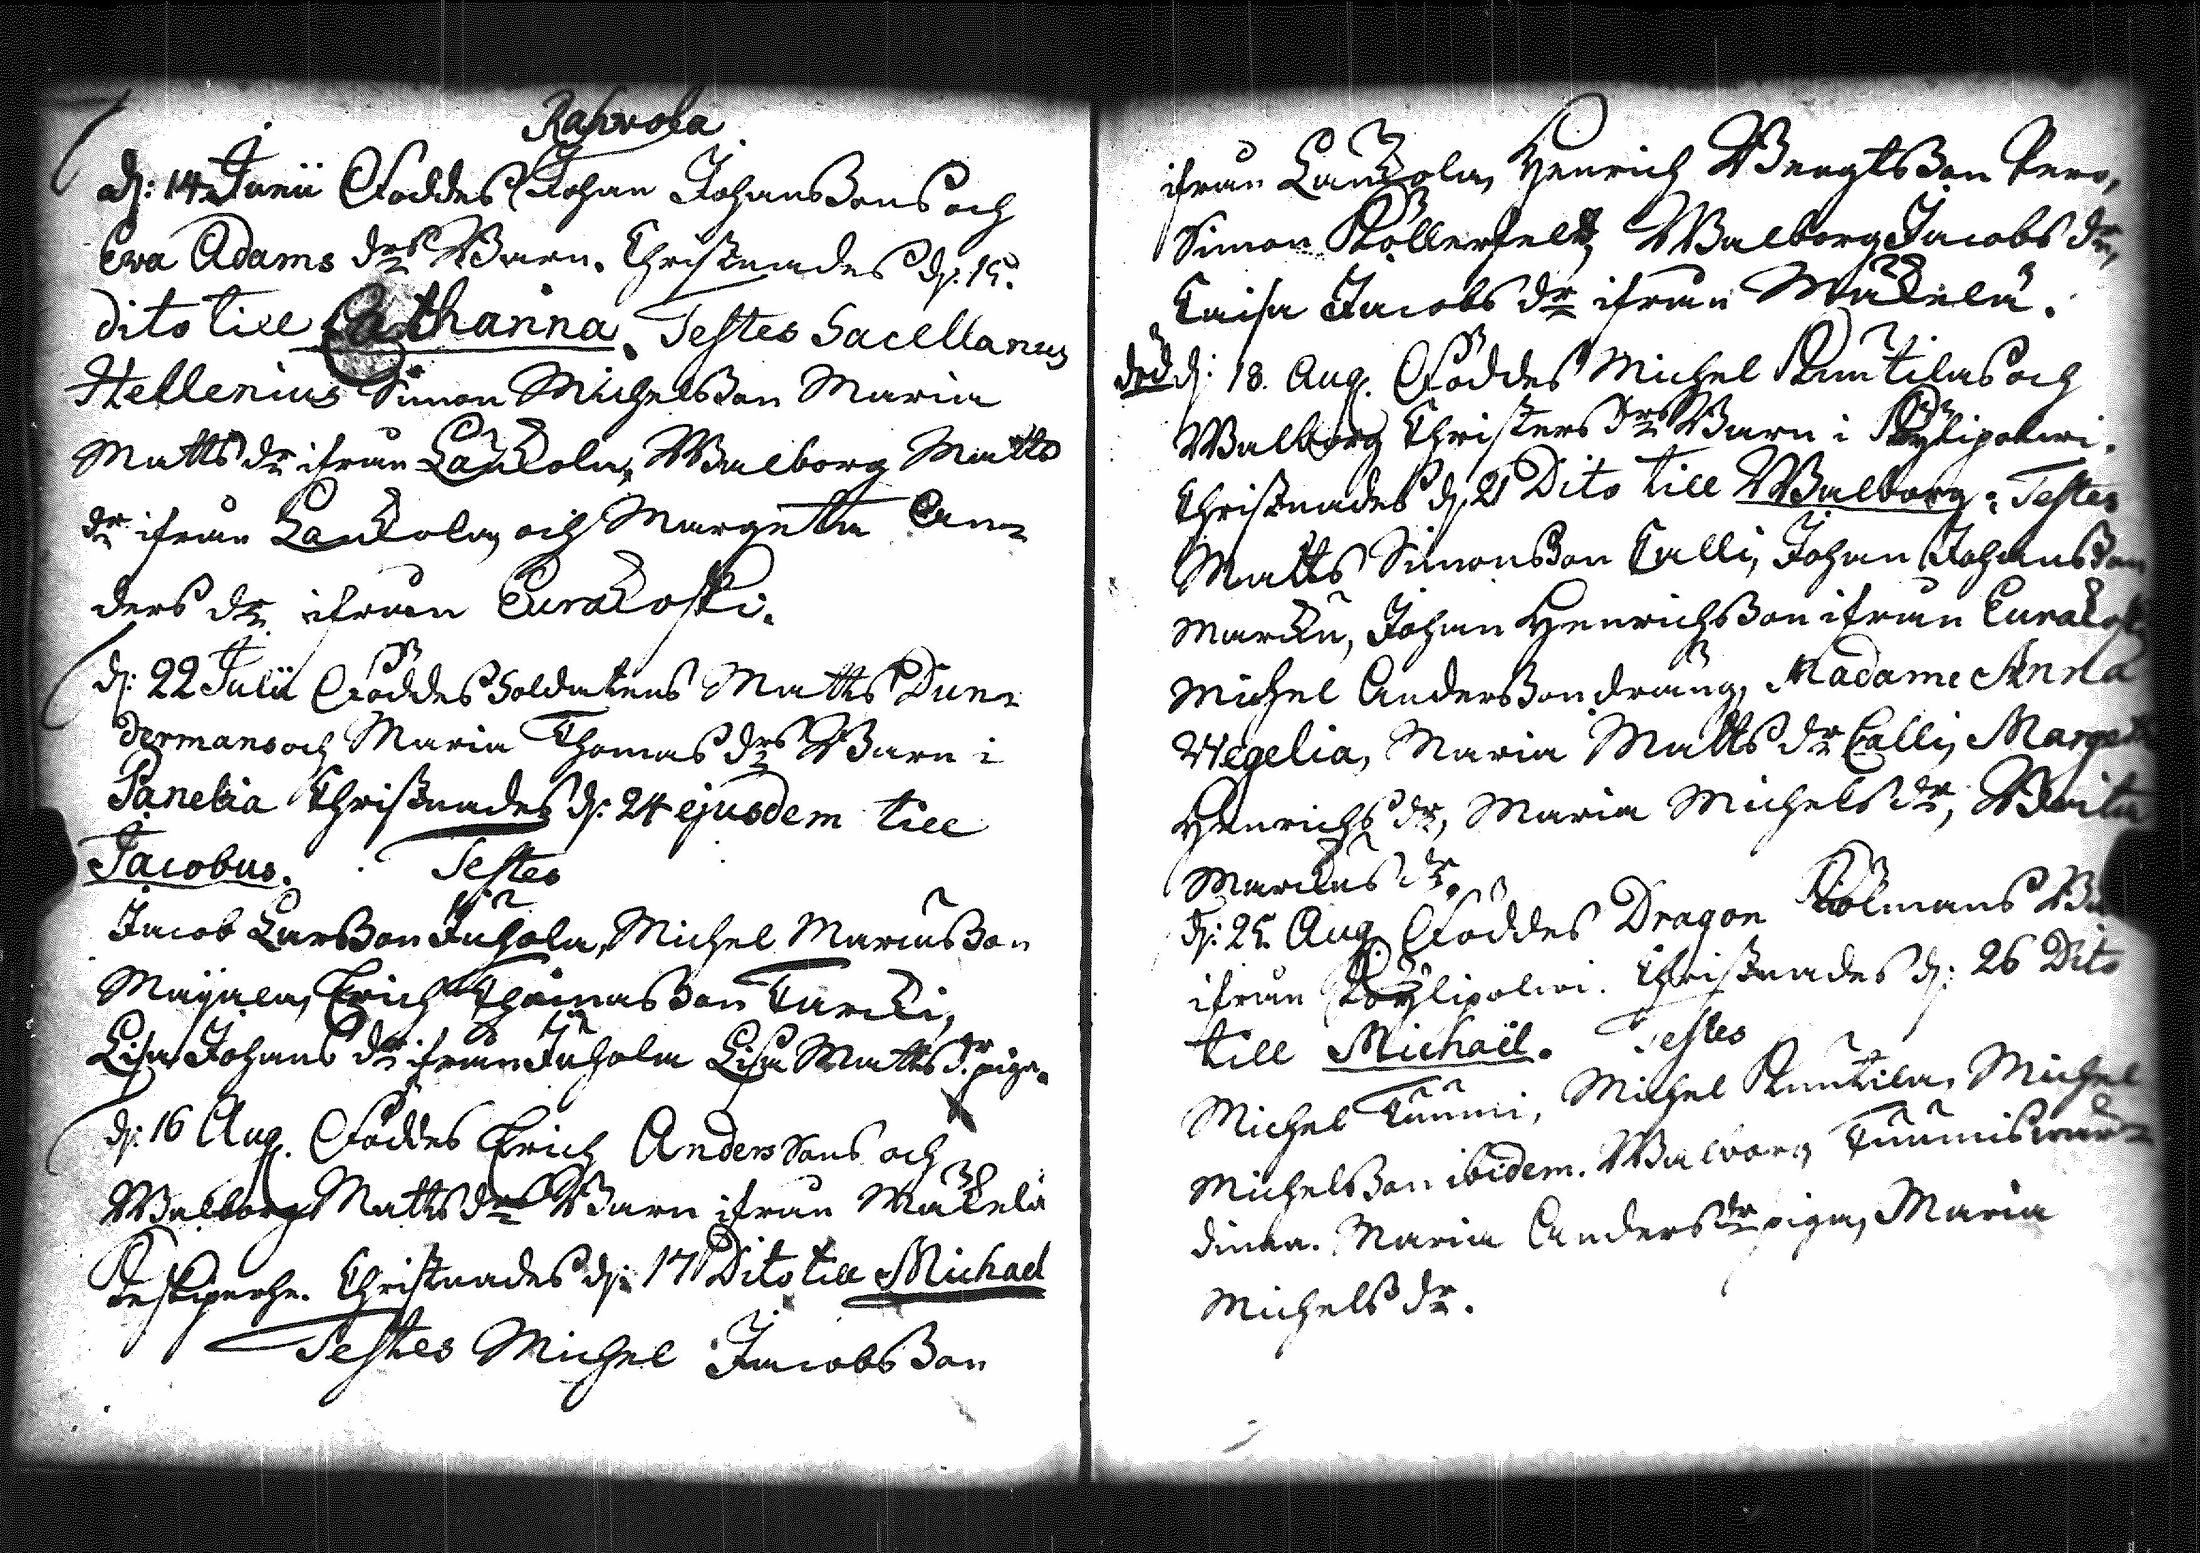 Rahvola
d: 14 Junii Föddes Johan Johanssons och
Ewa Adams drs Barn. Christnades d: 15.
dito till Cathanna. Testes Sacellanus
Hellenius Simon Michelsson Maria
Matts dr ifrån Laukola, Walborg Matts
dr ifrån Laukola, och Margetta An-
ders dr ifrån Eurakoski.
d: 22 Julii Föddes Soldatens Matts Dun-
dermans och Maria Thomas drs Barn i
Panelia Christnades d: 24 ejusdem till
Jacobus. Testes
Jacob Larsson Juhola, Michel Marcusson
Mayala, Erich Thomasson Turcki,
Lisa Johans dr ifrån Juhola Lisa Matts dr piga.
d: 16 Aug. Föddes Erich Anderssons och
Walborg Matts drs Barn ifrån Mäkelä
Christnades d: 17 Dito till Michael
Testes Michel Jacobsson
ifrån Laukola, Henrich Bengtsson Pero,
Simon Köllerfelt, Walborg Jacobs dr,
Caisa Jacobs dr ifrån Mäkelä.
död d: 18. Aug. Föddes Michel Knutilas och
Walborg Christers drs Barn i Köylipolwi.
Christnades d. 21 Dito till Walborg: Testes
Matts Simonsson Calli, Johan Johansson
Marcku, Johan Henrichsson ifrån
Michel Andersson dräng, Madame Anna
Wegelia, Maria Matts dr Calli,
Henrichs dr, Maria Michels dr,
Marckus dr.
d: 25 Aug. Föddes Dragon Kolmans
ifrån Köylipolwi. Christnades d: 26 Dito
till Michaël. Testes
Michel Tuumi, Michel Knutila, Michel
Michelsson ibidem. Walborg
Maria Anders dr piga, Maria
Michels dr.